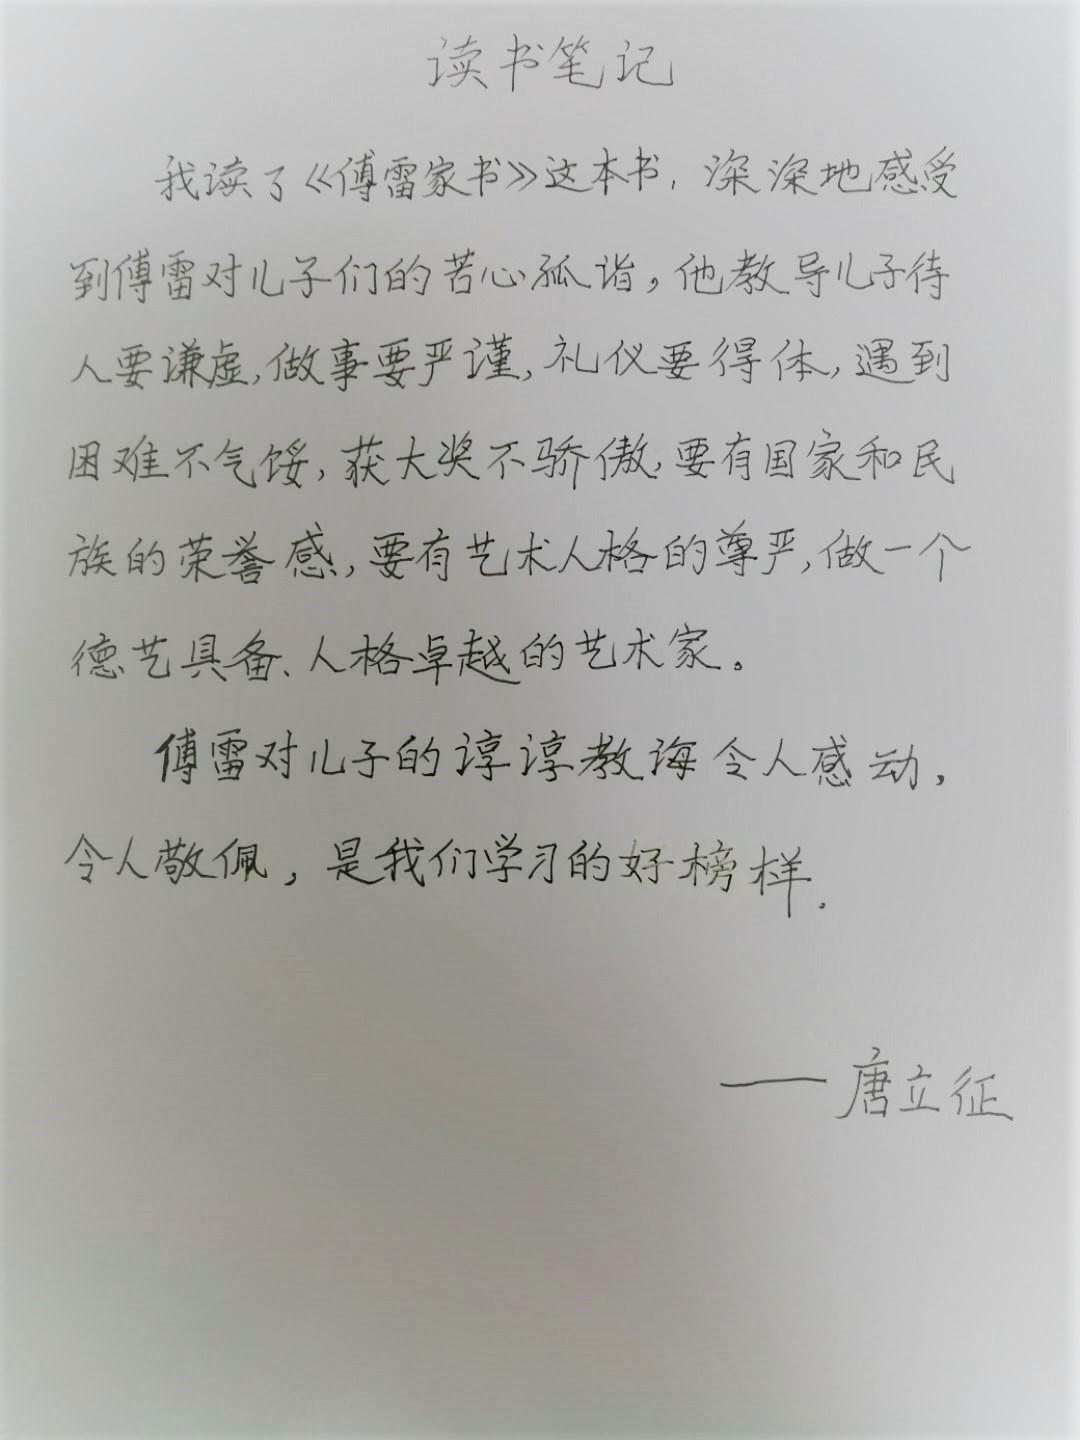 读书笔记
我读了《傅雷家书》这本书，深深地感受
到傅雷对儿子们的苦心孤诣，他教导儿子待
人要谦虚，做事要严谨，礼仪要得体，遇到
困难不气馁，获大奖不骄傲，要有国家和民
族的荣誉感，要有艺术人格的尊严，做一个
德艺具备、人格卓越的艺术家。
傅雷对儿子的谆谆教诲令人感动，
令人敬佩，是我们学习的好榜样.
——唐立征